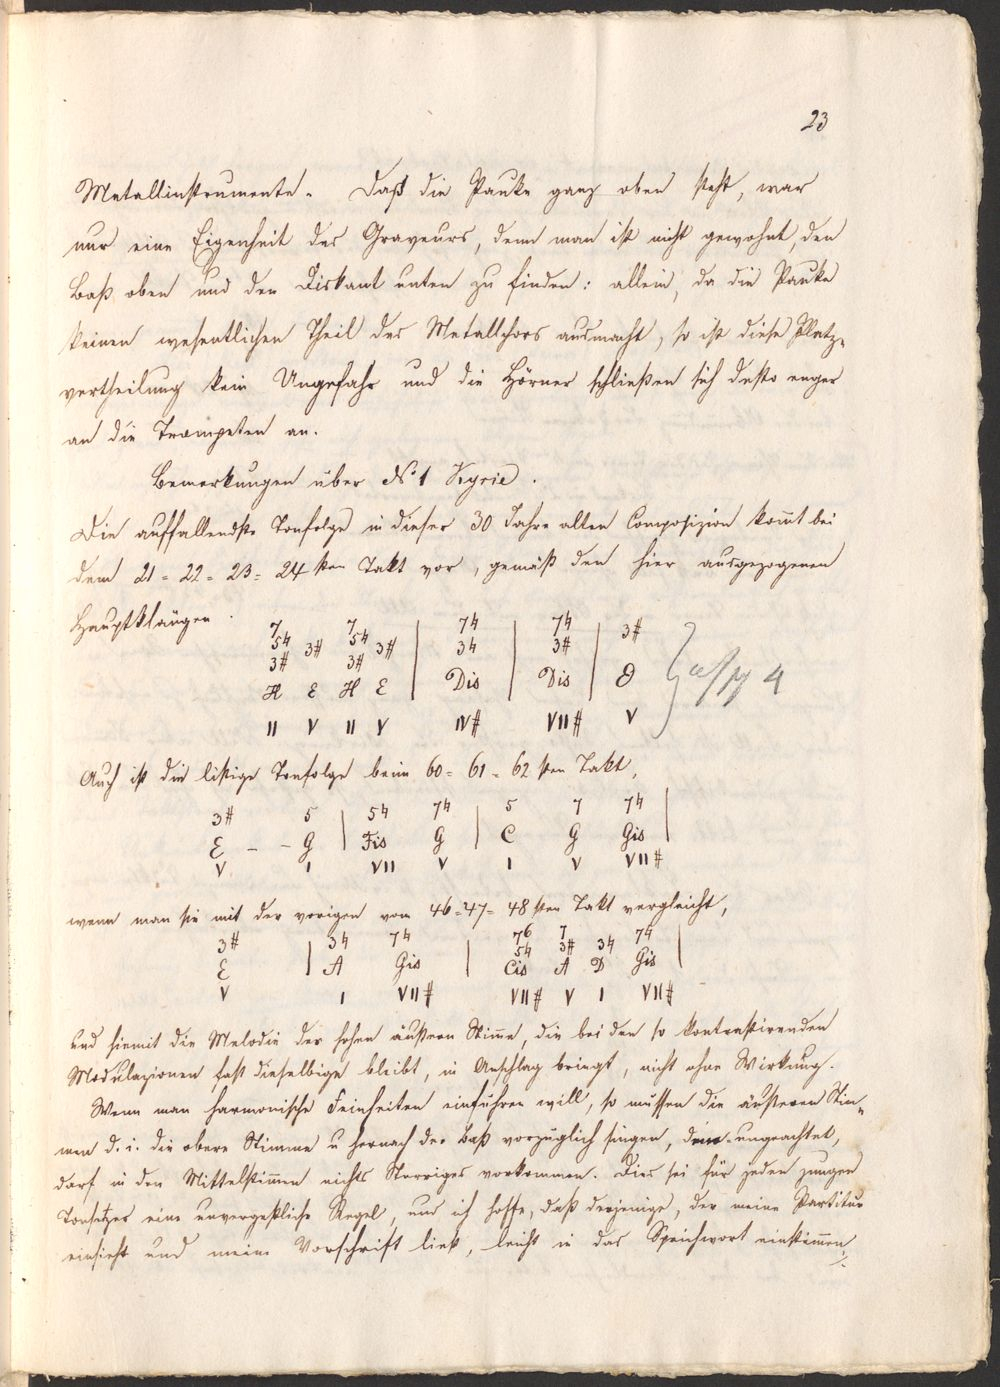 23
Metallinstrumente. Daß die Pauke ganz oben steht, war
nur eine Eigenheit des Graveurs, denn man ist nicht gewohnt, den
Baß oben und den Diskant unten zu finden: allein, da die Pauke
keinen wesentlichen Theil des Metallchors ausmacht, so ist diese Platz-
vertheilung kein Ungefähr und die Hörner schließen sich desto enger
an die Trompeten an.
Bemerkungen über No 1 Kyrie.
Die auffallendste Tonfolge in dieser 30 Jahre alten Composizion kommt bei
dem 21 = 22 = 23 = 24 sten Takt vor, gemäß den hier ausgezogenen
Hauptklängen.
7 7 7♮ 7♮
5♮ 3# 5♮ 3# 3♮ 3# 3#
3# 3#
H E H E | Dis | Dis |
II V II V IV# VII# V
4
Auch ist die listige Tonfolge beim 60 = 61 = 62 sten Takt,
3# 5 5♮ 7♮ 5 7 7♮
E - - G | Fis G | C G Gis |
V I VII V I V VII#
wenn man sie mit der vorigen vom 46 = 47 = 48 sten Takt vergleicht,
3# 3♮ 7♮ 7♮ 7 3♮ 7♮
5♮ 3#
E | A Gis | Cis A D Gis |
V I VII# VII# V I VII#
und hiemit die Melodie der hohen äußern Stimme, die bei den so kontrastirenden
Modulazionen fast dieselbige bleibt, in Anschlag bringt, nicht ohne Wirkung.
Wenn man harmonische Feinheiten einführen will, so müssen die äußeren Stim-
men d. i. die obere Stimme u hernach der Baß vorzüglich singen, dem-ungeachtet,
darf in den Mittelstimmen nichts Störriges vorkommen. Dies sei für jeden jungen
Tonsetzer eine unvergeßliche Regel, und ich hoffe, daß derjenige, der meine Partitur
einsieht und meine Vorschrift ließt, leicht in das Sprichwort einstimmen